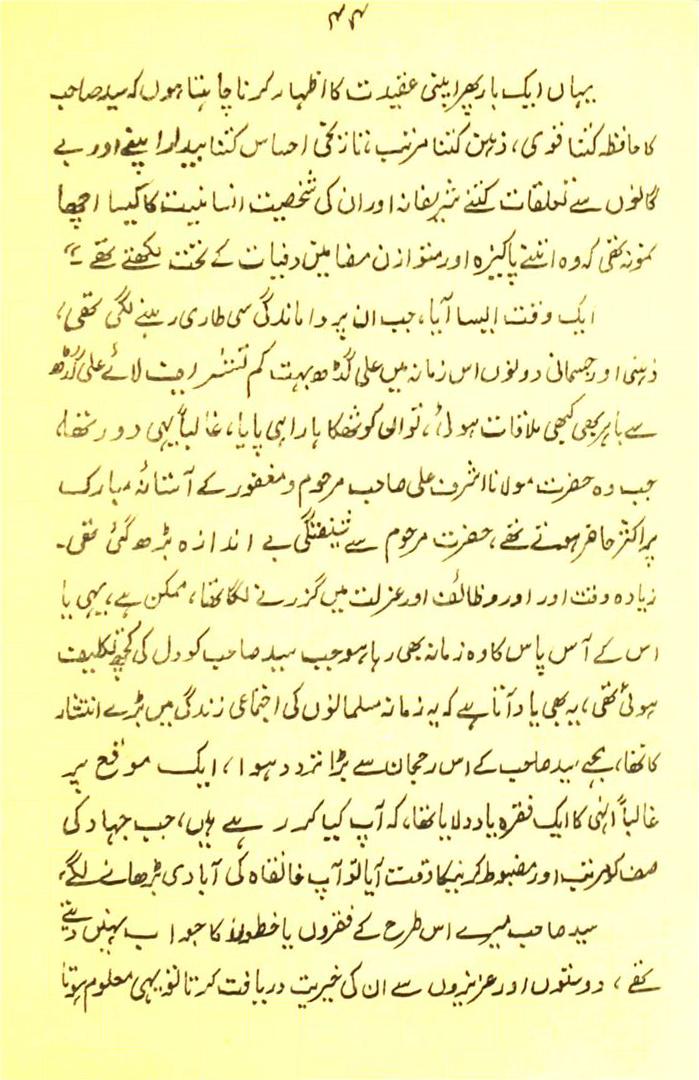 ۴۴
یہاں ایک بار پھر اپنی عقیدت کا اظہار کرنا چاہتا ہوں کہ سید صاحب
کا حافظہ کتنا قوی، ذہن کتنا مرتب، تاریخی احساس کتنا بیدار اپنے اور بے
گانوں سے تعلقات کتنے شریفانہ اور ان کی شخصیت انسانیت کا کیسا اچھا
نمونہ تھی کہ وہ اتنے پاکیزہ اور متوازن مضامین وفیات کے تحت لکھتے تھے ۔"
ایک وقت ایسا آیا، جب ان پر واماندگی سی طاری رہنے لگی تھی،
ذہنی اور جسمانی دونوں اس زمانہ میں علی گڈھ بہت کم تشریف لائے علی گڈھ
سے باہر بھی کبھی ملاقات ہوئی، تو ان کو تھکا ہارا ہی پایا، غالباً یہی دور تھا،
جب وہ حضرت مولانا اشرف علی صاحب مرحوم و مغفور کے آستانۂ مبارک
پر اکثر حاضر ہوتے تھے، حضرت مرحوم سے شیفتگی بے اندازہ بڑھ گئی تھی۔
زیادہ وقت اور اوروظائف اور عزلت میں گزرنے لگا تھا، ممکن ہے، یہی یا
اس کے آس پاس کا وہ زمانہ بھی رہا ہو جب سید صاحب کو دل کی کچھ تکلیف
ہوئی تھی، یہ بھی یاد آتا ہے کہ یہ زمانہ مسلمانوں کی اجتماعی زندگی میں بڑے انتشار
کا تھا، مجھے سید صاحب کے اس رجحان سے بڑا تردد ہوا، ایک موقع پر
غالباً انہی کا ایک فقرہ یاد دلایا تھا، کہ آپ کیا کر رہے ہیں، جب جہاد کی
صف کو مرتب اور مضبوط کرنیکا وقت آیا تو آپ خانقاہ کی آبادی بڑھانے لگے،
سید صاحب میرے اس طرح کے فقروں یا خطوں کا جواب نہیں دیتے
تھے، دوستوں اور عزیزوں سے ان کی خیریت دریافت کرتا تو یہی معلوم ہوتا